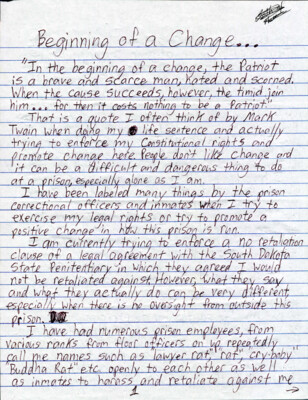 Beginning of a Change...
"In the beginning of a change, the Patriot
is a brave and scarce man, hated and scorned.
When the cause succeeds, however, the timid join
him... for then it costs nothing to be a Patriot."
That is a quote I often think of by Mark
Twain when doing my life sentence and actually
trying to enforce my Constitutional rights and
promote change here. People don't like change and
it can be a difficult and dangerous thing to do
at a prison, especially alone as I am.
I have been labeled many things by the prison
correctional officers and inmates when I try to
exercise my legal rights or try to promote a
positive change in how this prison is run.
I am currently trying to enforce a no retaliation
clause of a legal agreement with the South Dakota
State Penitentiary in which they agreed I would
not be retaliated against. However, what they say
and what they actually do can be very different,
especially when there is no oversight from outside this
prison.
I have had numerous prison employees, from
various ranks from floor officers on up repeatedly
call me names such as lawyer rat," "rat", cry-baby"
"Buddha Rat" etc. openly to each other as well
as inmates to harass and retaliate against me
1